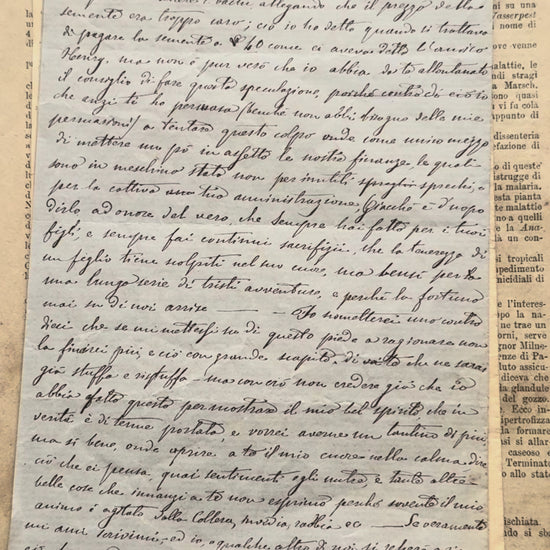 allegando che il prezzo della
semente era troppo caro; ciò io ho detto quando si trattava
di pagare la semente a 40 come ci aveva detto l'amico
Henry, ma non è pur vero che io abbia dato allontanato
il consiglio di fare questa speculazione, poichè contro di ciò io
che anzi ti ho persuasa (benchè non abbi bisogno delle mie
permissioni) a tentare questo colpo onde come unico mezzo
di mettere un pò in assetto le nostre finanze le quali
sono in meschino stato non per inutili sprechi,
e per la cattiva mia amministrazione. Giacchè è d'uopo
dirlo, ad onore del vero, che sempre hai fatto per i tuoi
figli, e sempre fai continui sacrifizii, che la tenerezza di
un figlio tiene scolpiti nel suo cuore, ma bensì per la
una lunga serie di tristi avventure, e perchè la fortuna
mai su di noi arrise — Io scometterei uno contro
dieci che se mi mettessi su di questo piede a ragionare non
la finirei più, e ciò con grande scapito di te che ne sarai
già stuffa e ristuffa — ma con ciò non credere già che io
abbia fatto questo per mostrare il mio bel spirito che in
verità è di tenue portata e vorrei averne un tantino di più,
ma si bene, onde aprire a te il mio cuore nella calma, dire
ciò che ei pensa, quai sentimenti egli nutre e tante altre
belle cose che innanzi a te non esprimo perchè sovente il mio
animo è agitato dalla collera, invidia, rabbia ec — Se veramente
mi ami scrivimi, ed io
ni su una
l'asserpest
nome di
ove venne
alattie, le
ndi stragi
a Marsch.
ono quasi
vi fu cola
appunto di
dissenteria
efazione di
o di queste
istrugge di
la malaria.
sta pianta
te malattie
no a quelli
e la Ana-
à un con-
si tropicali
npedimento
micidiali di
e l'interes-
po la na-
ne trae un
orni, serve
gnor Milne-
enze di Pa-
duto assicu-
diceva che
la glandule
del gozzo.
Ecco in-
ipertrofizza
la fornare
si allar
caseoso e
Terminat
o allo stato
ischiata.
ndo si sba